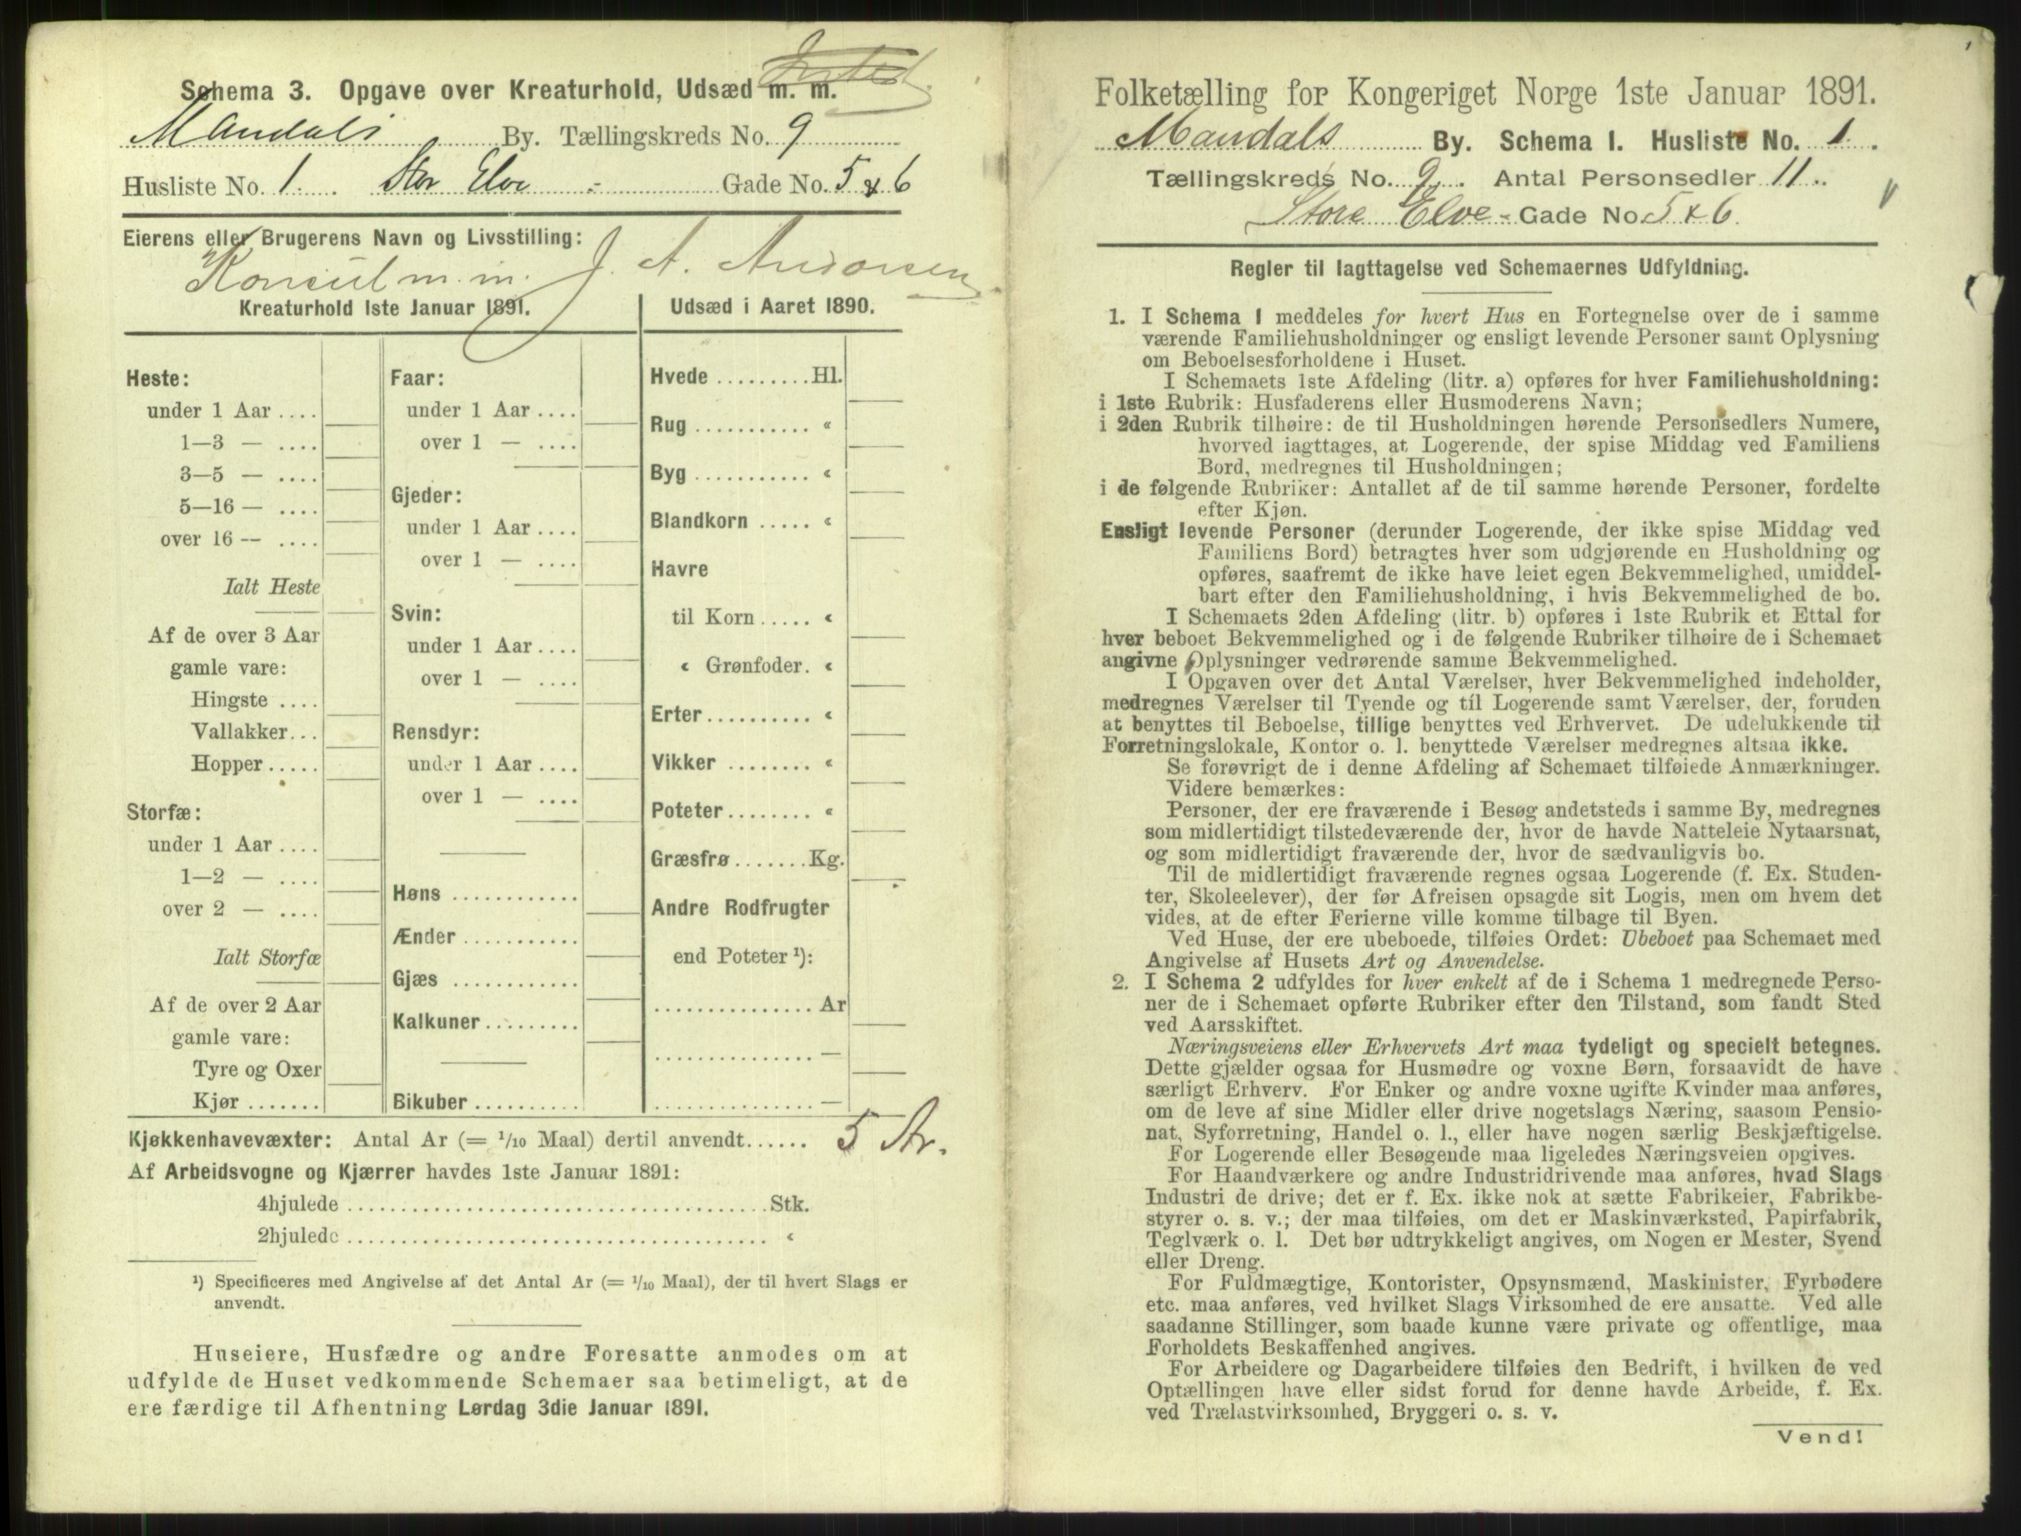 Schema 3. Opgave over Kreaturhold, Udsæd m. m.
Mandals By. Tællingskreds No. 9
Husliste No. 1. Stor Elve - Gade No. 5 & 6
Eierens eller Brugerens Navn og Livsstilling:
Konsul m.m. J. A. Andorsen
Kreaturhold 1ste Januar 1891.
Heste:
under 1 Aar ....
1—3 — ....
3—5 — ....
5—16 — ....
over 16 — ....
Ialt Heste
Af de over 3 Aar
gamle vare:
Hingste ....
Vallakker...
Hopper.....
Storfæ:
under 1 Aar ....
1—2 — ....
over 2 — ....
Ialt Storfæ
Af de over 2 Aar
gamle vare:
Tyre og Oxer
Kjør .......
Faar:
under 1 Aar ....
over 1 — ....
Gjeder:
under 1 Aar ....
over 1 — ....
Svin:
under 1 Aar ....
over 1 — ....
Rensdyr:
under 1 Aar ....
over 1 — ....
Høns ............
Ænder ...........
Gjæs ............
Kalkuner.........
Bikuber ..........
Udsæd i Aaret 1890.
Hvede .........Hl.
Rug ........... «
Byg ........... «
Blandkorn ..... «
Havre
til Korn ..... «
« Grønfoder. «
Erter.......... «
Vikker ........ «
Poteter........ «
Græsfrø .......Kg.
Andre Rodfrugter
end Poteter ¹):
............... Ar
............... —
............... —
Kjøkkenhavevæxter: Antal Ar (= 1/10 Maal) dertil anvendt...... 5 Ar.
Af Arbeidsvogne og Kjærrer havdes 1ste Januar 1891:
4hjulede ....................................... Stk.
2hjulede ....................................... «
¹) Specificeres med Angivelse af det Antal Ar (= 1/10 Maal), der til hvert Slags er
anvendt.
Huseiere, Husfædre og andre Foresatte anmodes om at
udfylde de Huset vedkommende Schemaer saa betimeligt, at de
ere færdige til Afhentning Lørdag 3die Januar 1891.
Folketælling for Kongeriget Norge 1ste Januar 1891.
Mandals By. Schema I. Husliste No. 1.
Tællingskreds No. 9. Antal Personsedler 11.
Store Elve - Gade No. 5 & 6.
Regler til Iagttagelse ved Schemaernes Udfyldning.
1. I Schema 1 meddeles for hvert Hus en Fortegnelse over de i samme
værende Familiehusholdninger og ensligt levende Personer samt Oplysning
om Beboelsesforholdene i Huset.
I Schemaets 1ste Afdeling (litr. a) opføres for hver Familiehusholdning:
i 1ste Rubrik: Husfaderens eller Husmoderens Navn;
i 2den Rubrik tilhøire: de til Husholdningen hørende Personsedlers Numere,
hvorved iagttages, at Logerende, der spise Middag ved Familiens
Bord, medregnes til Husholdningen;
i de følgende Rubriker: Antallet af de til samme hørende Personer, fordelte
efter Kjøn.
Ensligt levende Personer (derunder Logerende, der ikke spise Middag ved
Familiens Bord) betragtes hver som udgjørende en Husholdning og
opføres, saafremt de ikke have leiet egen Bekvemmelighed, umiddel-
bart efter den Familiehusholdning, i hvis Bekvemmelighed de bo.
I Schemaets 2den Afdeling (litr. b) opføres i 1ste Rubrik et Ettal for
hver beboet Bekvemmelighed og i de følgende Rubriker tilhøire de i Schemaet
angivne Oplysninger vedrørende samme Bekvemmelighed.
I Opgaven over det Antal Værelser, hver Bekvemmelighed indeholder,
medregnes Værelser til Tyende og til Logerende samt Værelser, der, foruden
at benyttes til Beboelse, tillige benyttes ved Erhvervet. De udelukkende til
Forretningslokale, Kontor o. l. benyttede Værelser medregnes altsaa ikke.
Se forøvrigt de i denne Afdeling af Schemaet tilføiede Anmærkninger.
Videre bemærkes:
Personer, der ere fraværende i Besøg andetsteds i samme By, medregnes
som midlertidigt tilstedeværende der, hvor de havde Natteleie Nytaarsnat,
og som midlertidigt fraværende der, hvor de sædvanligvis bo.
Til de midlertidigt fraværende regnes ogsaa Logerende (f. Ex. Studen-
ter, Skoleelever), der før Afreisen opsagde sit Logis, men om hvem det
vides, at de efter Ferierne ville komme tilbage til Byen.
Ved Huse, der ere ubeboede, tilføies Ordet: Ubeboet paa Schemaet med
Angivelse af Husets Art og Anvendelse.
2. I Schema 2 udfyldes for hver enkelt af de i Schema 1 medregnede Perso-
ner de i Schemaet opførte Rubriker efter den Tilstand, som fandt Sted
ved Aarsskiftet.
Næringsveiens eller Erhvervets Art maa tydeligt og specielt betegnes.
Dette gjælder ogsaa for Husmødre og voxne Børn, forsaavidt de have
særligt Erhverv. For Enker og andre voxne ugifte Kvinder maa anføres,
om de leve af sine Midler eller drive nogetslags Næring, saasom Pensio-
nat, Syforretning, Handel o. l., eller have nogen særlig Beskjæftigelse.
For Logerende eller Besøgende maa ligeledes Næringsveien opgives.
For Haandværkere og andre Industridrivende maa anføres, hvad Slags
Industri de drive; det er f. Ex. ikke nok at sætte Fabrikeier, Fabrikbe-
styrer o. s. v.; der maa tilføies, om det er Maskinværksted, Papirfabrik,
Teglværk o. l. Det bør udtrykkeligt angives, om Nogen er Mester, Svend
eller Dreng.
For Fuldmægtige, Kontorister, Opsynsmænd, Maskinister, Fyrbødere
etc. maa anføres, ved hvilket Slags Virksomhed de ere ansatte. Ved alle
saadanne Stillinger, som baade kunne være private og offentlige, maa
Forholdets Beskaffenhed angives.
For Arbeidere og Dagarbeidere tilføies den Bedrift, i hvilken de ved
Optællingen have eller sidst forud for denne havde Arbeide, f. Ex.
ved Trælastvirksomhed, Bryggeri o. s. v.
Vend!